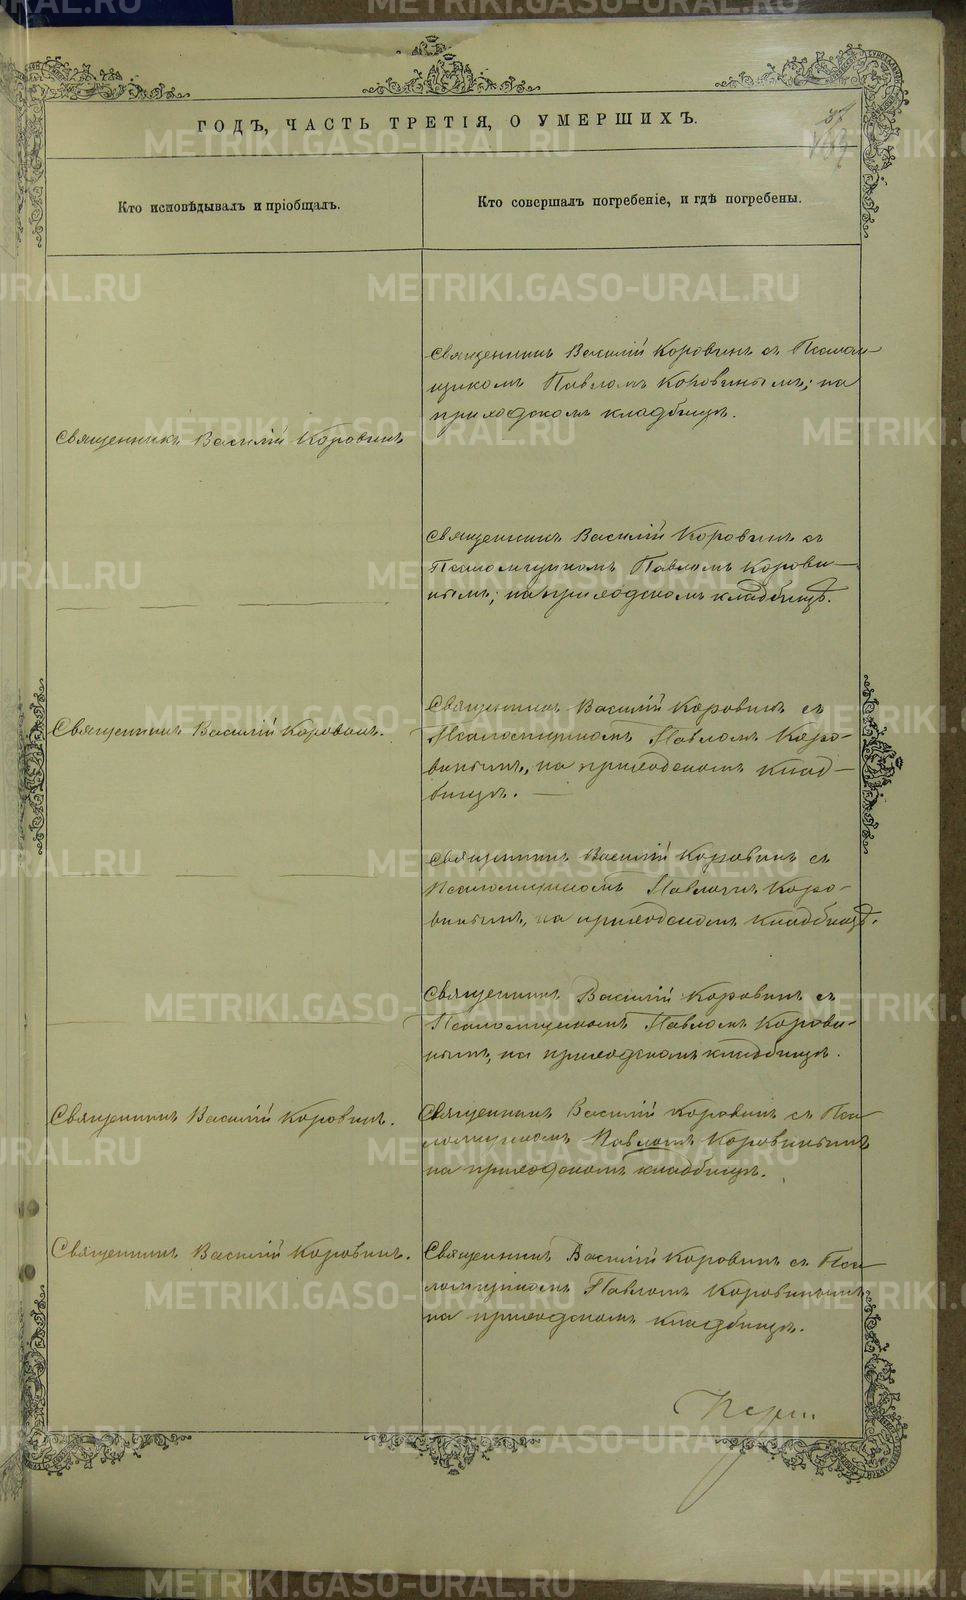 ГОДЪ, ЧАСТЬ ТРЕТІЯ, О УМЕРШИХЪ.
Кто исповѣдывалъ и пріобщалъ.
Кто совершалъ погребеніе, и гдѣ погребены.
Священникъ Василій Коровинъ съ Псалом-
щикомъ Павломъ Коровинымъ; на
приходскомъ кладбищѣ.
Священникъ Василій Коровинъ
Священникъ Василій Коровинъ съ
Псаломщикомъ Павломъ Корови-
нымъ; на приходскомъ кладбищѣ.
Священникъ Василій Коровинъ.
Священникъ Василій Коровинъ съ
Псаломщикомъ Павломъ Коро-
винымъ, на приходскомъ клад-
бищѣ.
Священникъ Василій Коровинъ съ
Псаломщикомъ Павломъ Коро-
винымъ, на приходскомъ кладбищѣ.
Священникъ Василій Коровинъ съ
Псаломщикомъ Павломъ Корови-
нымъ, на приходскомъ кладбищѣ.
Священникъ Василій Коровинъ.
Священникъ Василій Коровинъ съ Пса-
ломщикомъ Павломъ Коровинымъ
на приходскомъ кладбищѣ.
Священникъ Василій Коровинъ.
Священникъ Василій Коровинъ съ Пса-
ломщикомъ Павломъ Коровинымъ
на приходскомъ кладбищѣ.
METRIKI.GASO-URAL.RU